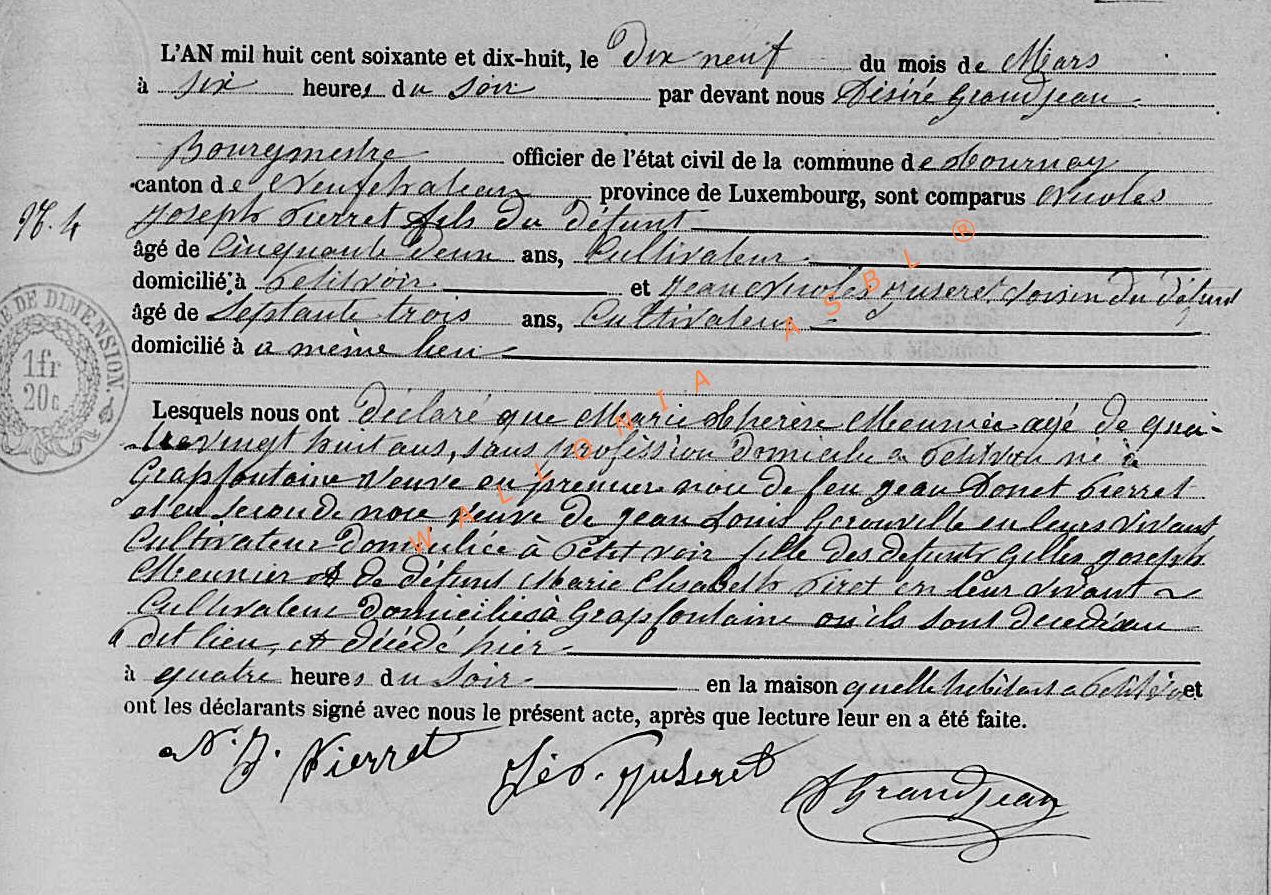 L'AN mil huit cent soixante et dix-huit, le Dix neuf du mois de Mars
à six heures du soir par devant nous Désiré Grandjean
Bourgmestre officier de l'état civil de la commune de Tournay
canton de Neufchateau province de Luxembourg, sont comparus Nicolas
N. 4
Joseph Pierret fils du défunt
âgé de Cinquante deux ans, Cultivateur
domicilié à Petitvoir et Jean Nicolas Guseret voisin du défunt
âgé de Septante trois ans, Cultivateur
domicilié à a même lieu
DE DIMENSION.
1fr
20c
Lesquels nous ont déclaré que Marie Thérèse Meunier agé de qua-
tre vingt huit ans, sans profession domicile a Petitvoir né à
Grapfontaine Veuve en premier noce de feu Jean Donet Pierret
et en seconde noce veuve de Jean Louis Gerouville en leurs vivant
Cultivateur domiciliée à Petitvoir fille des defunts Gilles Joseph
Meunier et de défunt Marie Elisabeth Piret en leur vivant
Cultivateur domiciliés à Grapfontaine ou ils sont decedé au
dit lieu, et décédé hier
à quatre heures du soir en la maison quelle habitant a Petitvoir et
ont les déclarants signé avec nous le présent acte, après que lecture leur en a été faite.
N. J. Pierret Guseret D Grandjean
WALLONIA ASBL ®